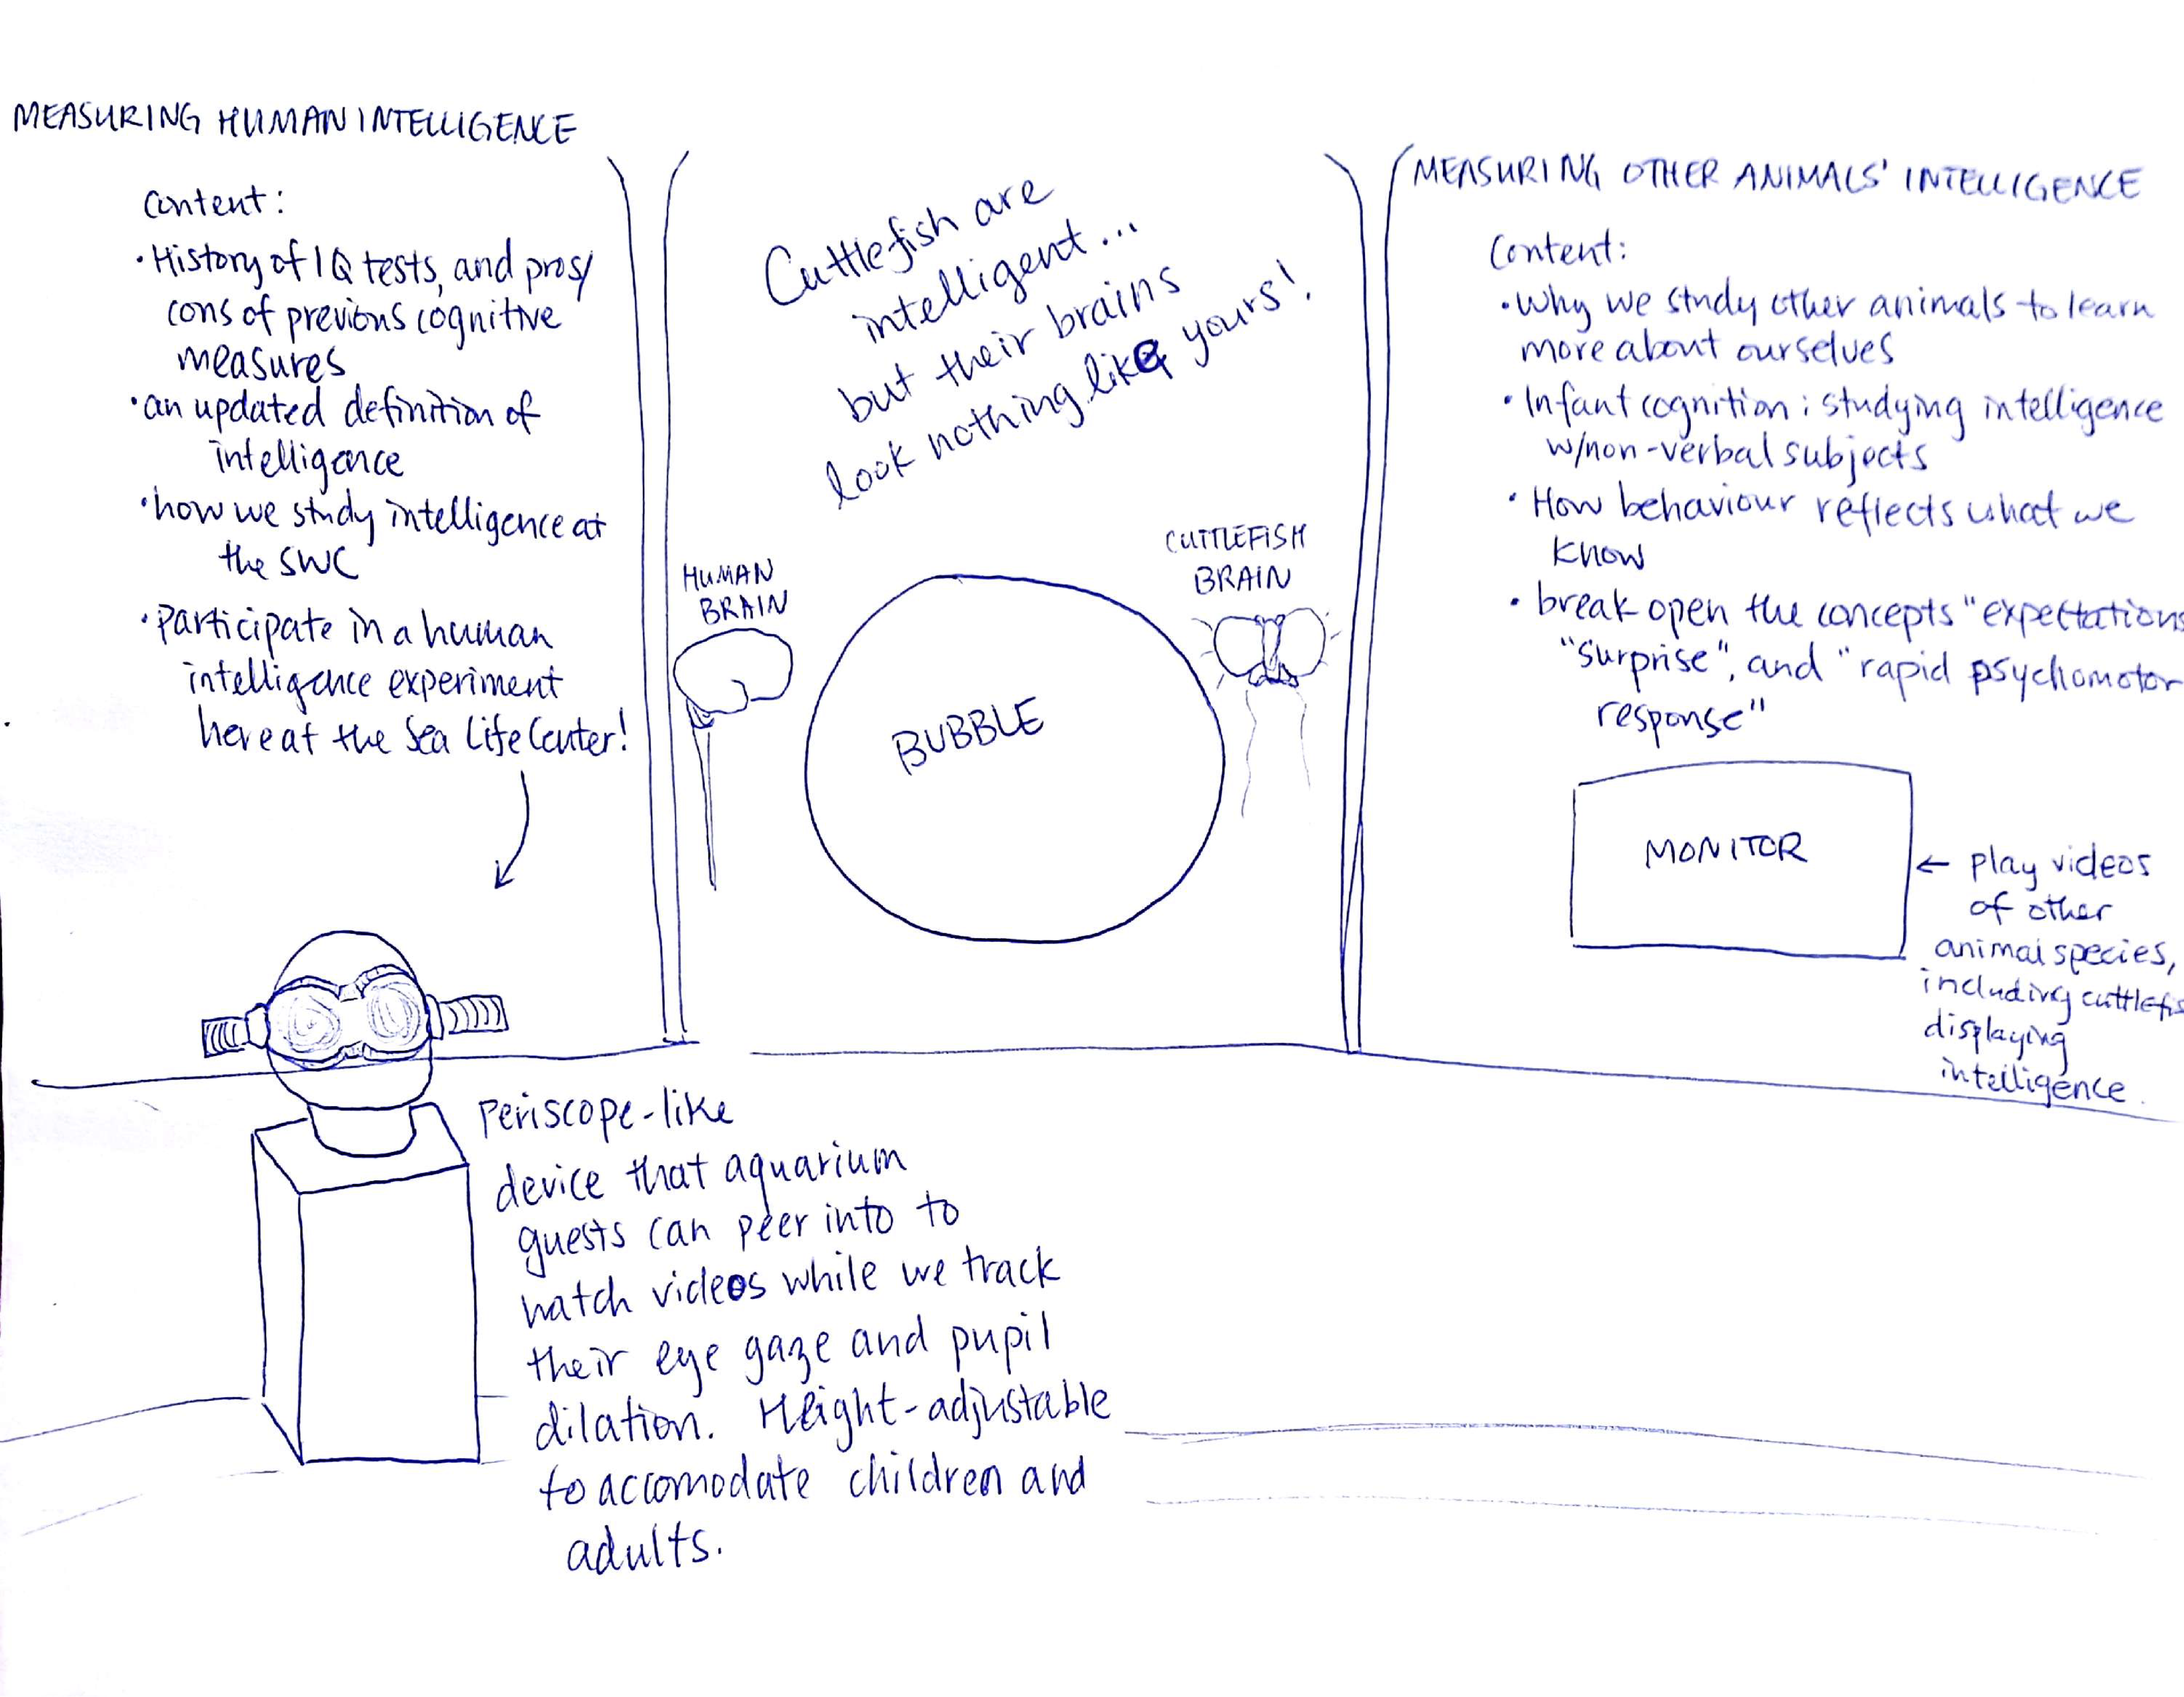 MEASURING HUMAN INTELLIGENCE
Content:
• History of IQ tests, and pros/
cons of previous cognitive
measures
• an updated definition of
intelligence
• how we study intelligence at
the SWC
• Participate in a human
intelligence experiment
here at the Sea Life Center!
Cuttlefish are
intelligent...
but their brains
look nothing like yours!
HUMAN
BRAIN
BUBBLE
CUTTLEFISH
BRAIN
MEASURING OTHER ANIMALS' INTELLIGENCE
Content:
• Why we study other animals to learn
more about ourselves
• Infant cognition: studying intelligence
w/non-verbal subjects
• How behaviour reflects what we
know
• break open the concepts "expectations
"surprise", and "rapid psychomotor
response"
MONITOR
← play videos
of other
animal species,
including cuttlefis
displaying
intelligence.
Periscope-like
device that aquarium
guests can peer into to
watch videos while we track
their eye gaze and pupil
dilation. Height-adjustable
to accomodate children and
adults.